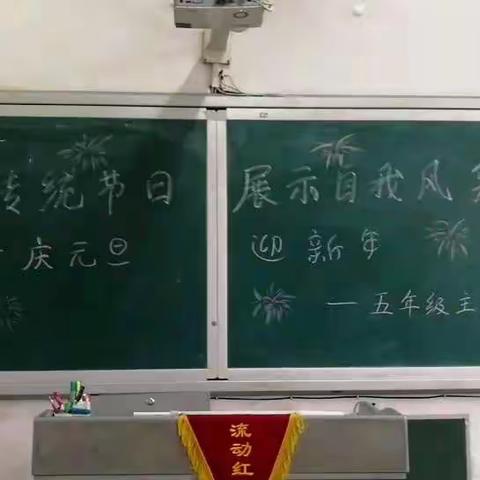 传统节日
庆元旦
展示自我风
迎新年
—五年级主
流动红